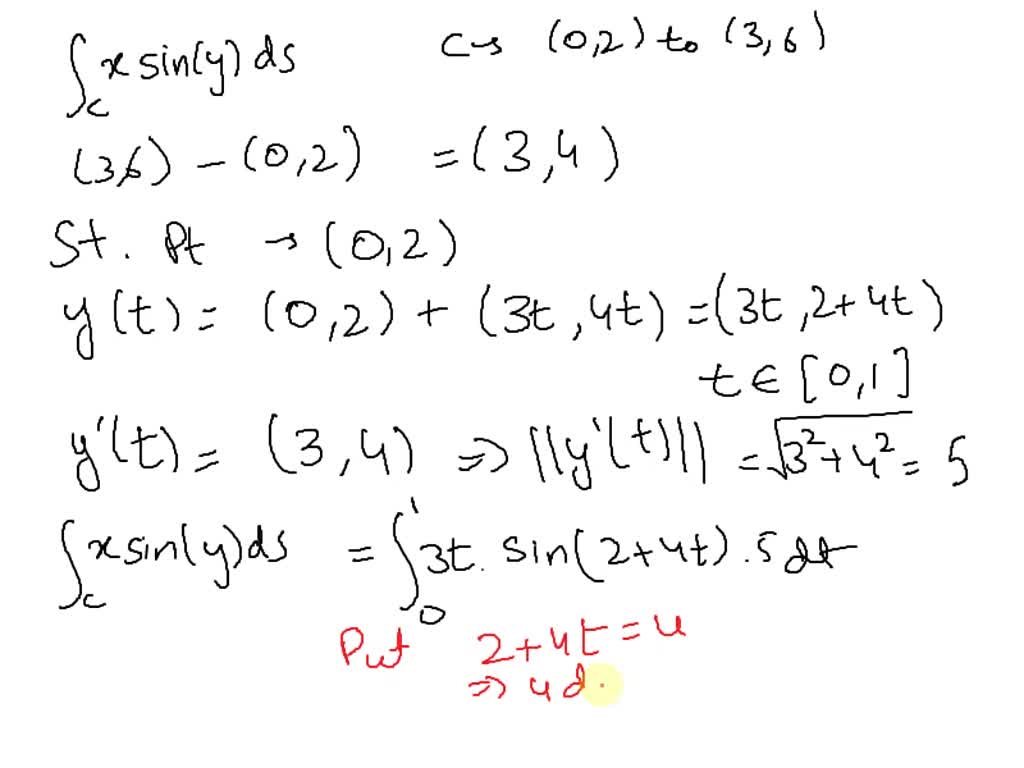 ∫_C x sin(y) ds C→ (0,2) to (3,6)
(3,6) − (0,2) = (3,4)
St. Pt → (0,2)
y(t) = (0,2) + (3t, 4t) = (3t, 2+4t)
t ∈ [0,1]
y'(t) = (3,4) ⇒ ||y'(t)|| = √(3²+4²) = 5
∫_C x sin(y) ds = ∫_0^1 3t. sin(2+4t) .5 dt
Put 2+4t = u
⇒ 4d